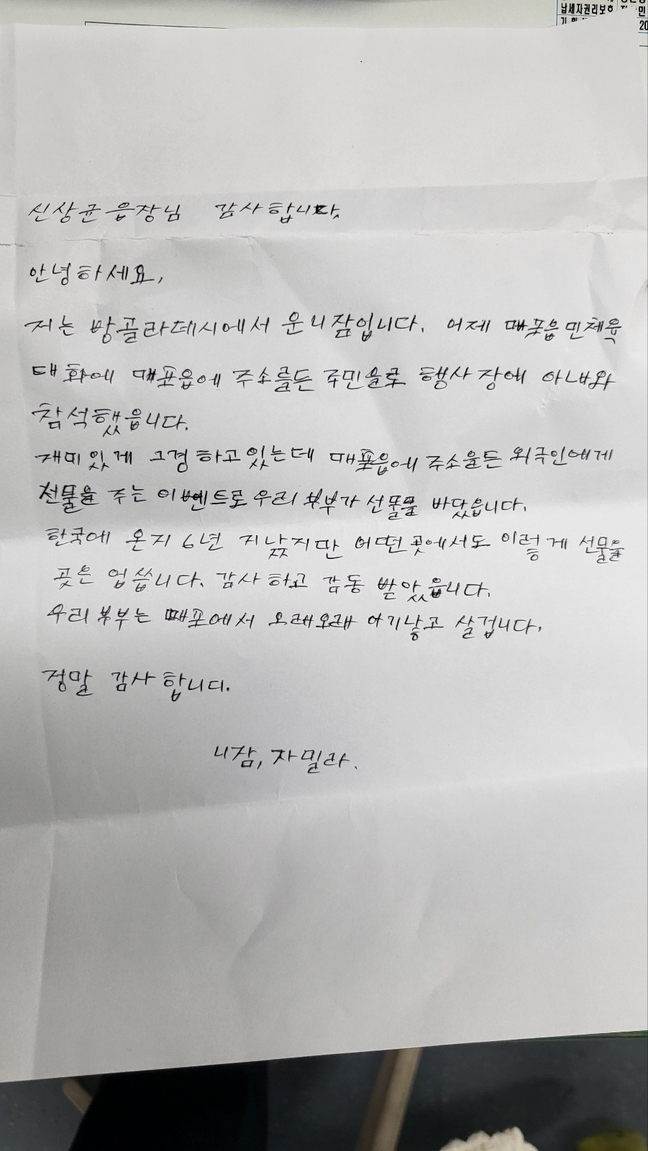 납세자권리보호
신상균 읍장님 감사합니다.
안녕하세요,
저는 방골라데시에서 온 니잠입니다. 어제 매포읍민체육
대화에 매포읍에 주소를든 주민을로 행사장에 아내와
참석했읍니다.
재미있게 그경하고있는데 매포읍에 주소을든 외국인에게
선물을 주는 이벤트로 우리 부부가 선물를 바닸읍니다.
한국에 온지 6년 지났지만 어떤곳에서도 이렇게 선물을
곳은 업씁니다. 감사하고 감동 받았읍니다.
우리 부부는 매포에서 오래오래 아기낳고 살겁니다.
정말 감사합니디.
니잠, 자밀라.